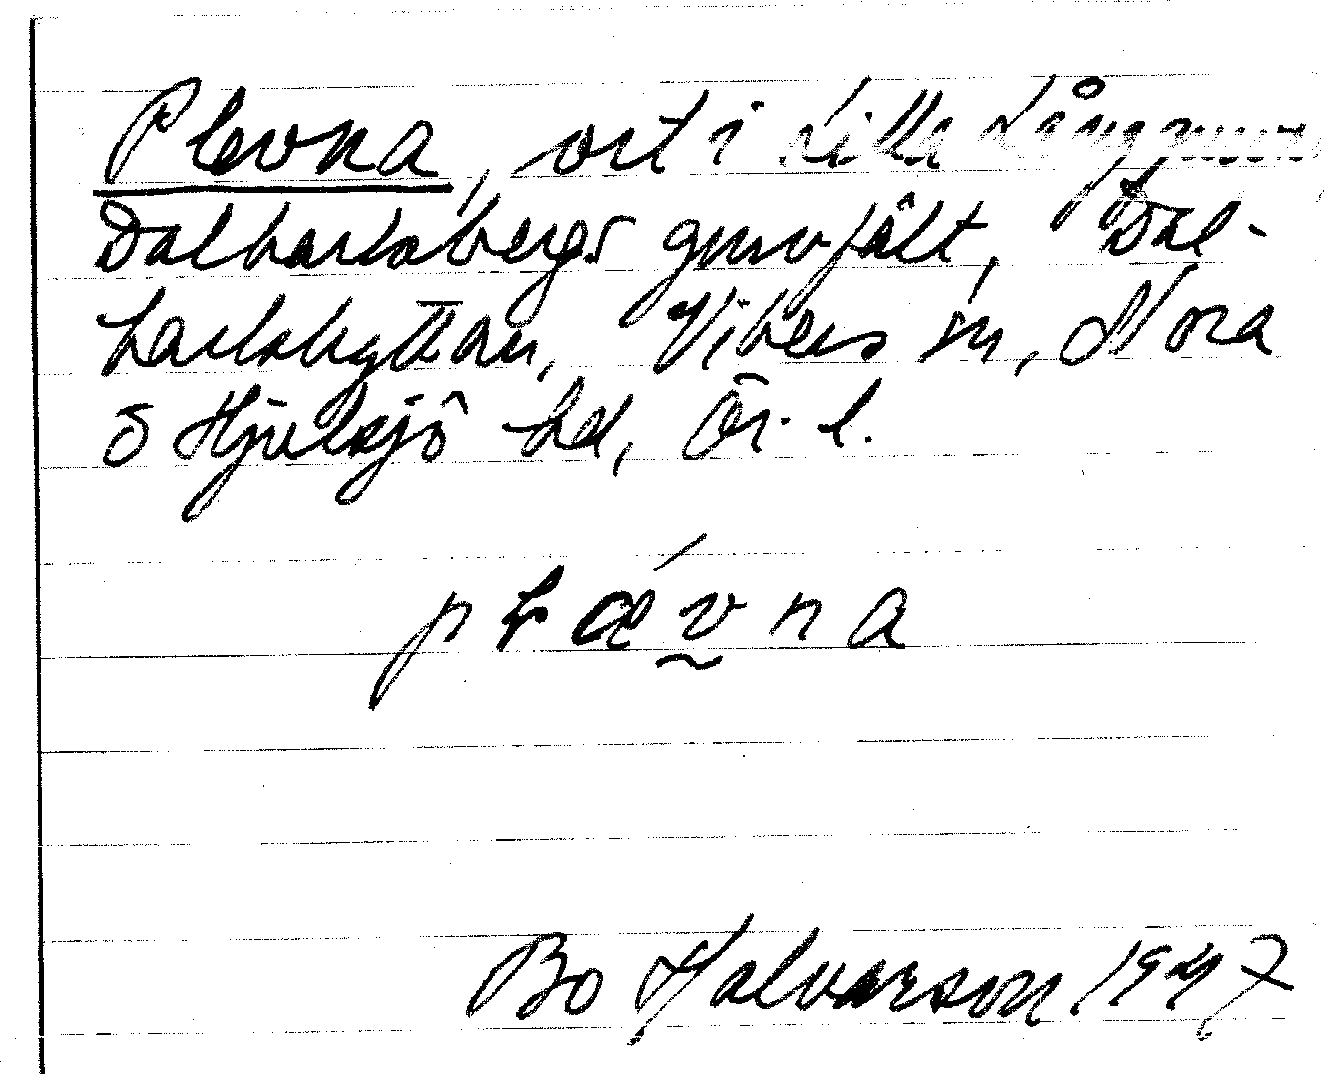 Plevna, ort i Lilla Långgruvan,
Dalkarlsbergs gruvfält, Dal-
karlshyttan, Vikers sn, Nora
o Hjulsjö hd, Ör. l.
plǽvna
Bo Halvarson 1947